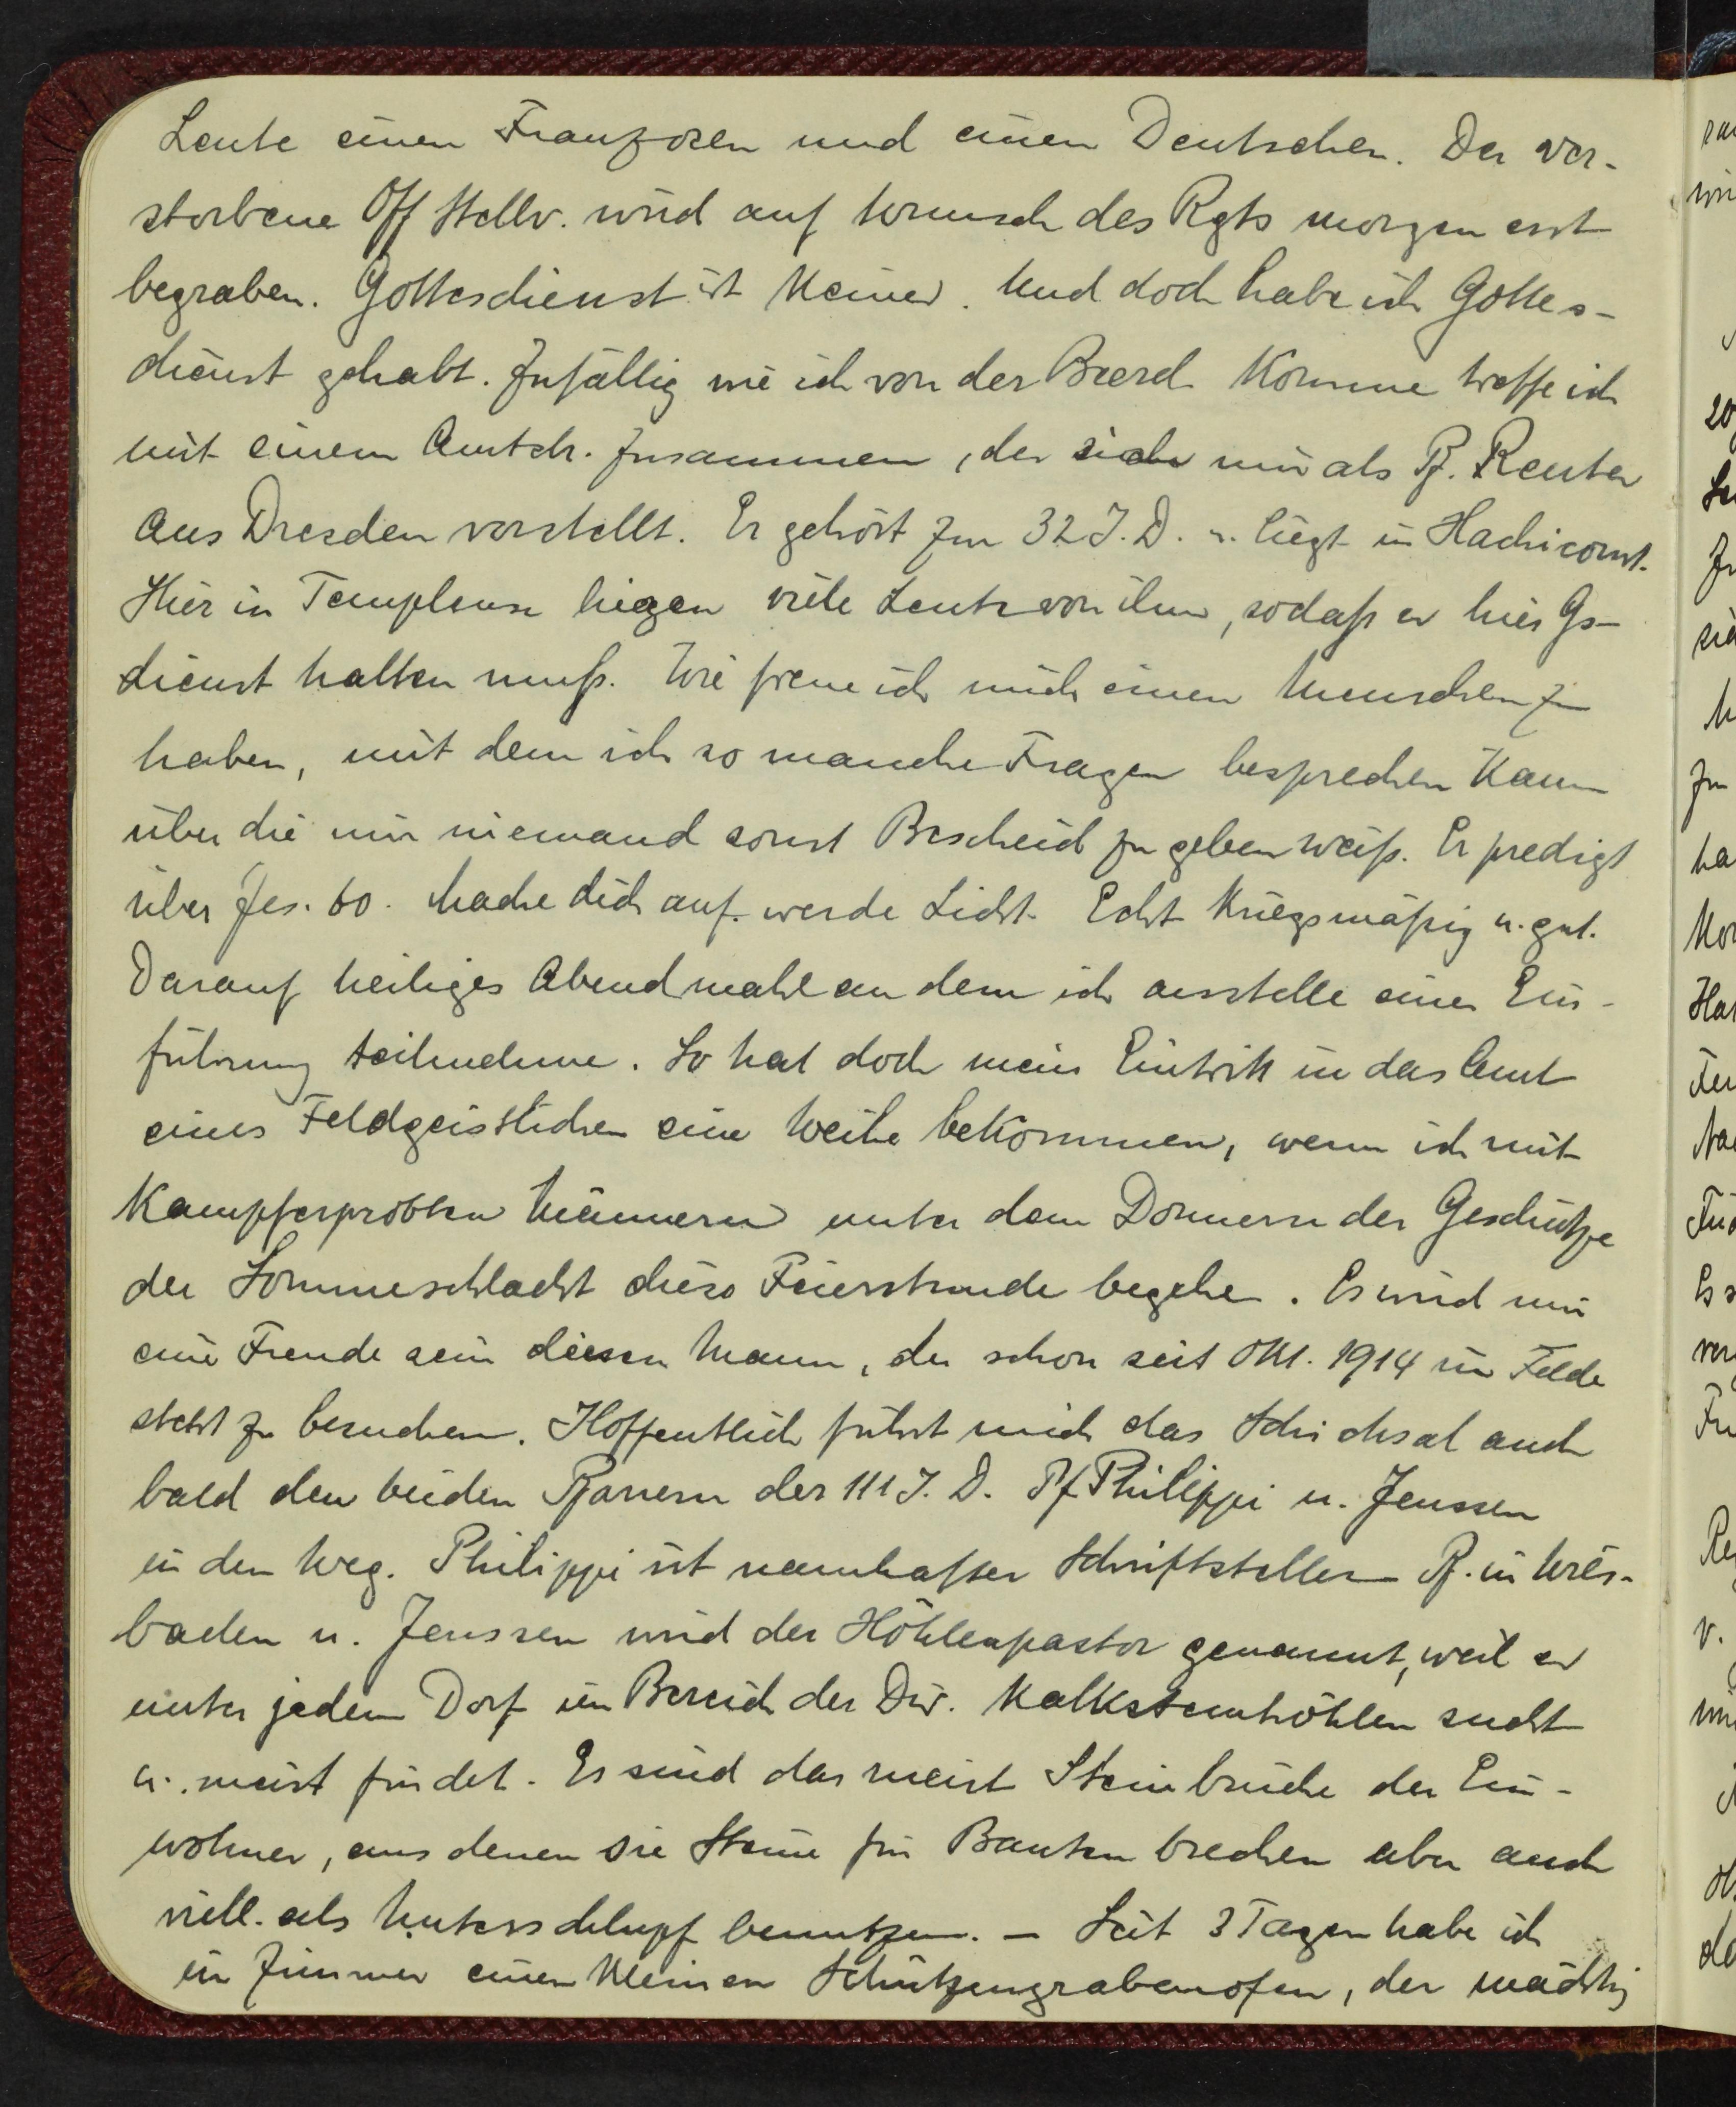 Leute einen Franzosen und einen Deutschen. Der ver-
storbene Off Stellv. wird auf Wunsch des Rgts morgen erst
begraben. Gottesdienst ist keiner. Und doch habe ich Gottes-
dienst gehabt. Zufällig wie ich von der Beerd. komme treffe ich
mit einem Amtsbr. zusammen, der sich mir als Pf. Reuter
aus Dresden vorstellt. Er gehört zur 32 I. D. u. liegt in
Hier in Templeux liegen viele Leute von ihm, sodaß er hier Gs-
dienst halten muß. Wie freue ich mich einen Menschen zu
haben, mit dem ich so manche Fragen besprechen kann
über die mir niemand sonst Bescheid zu geben weiß. Er predigt
über Jes. 60. Mache dich auf. werde Licht. Echt kriegsmäßig u. gut.
Darauf heiliges Abendmahl an dem ich anstelle einer Ein-
führung teilnehme. So hat doch mein Eintritt in das Amt
eines Feldgeistlichen eine Weihe bekommen, wenn ich mit
kampferprobten Männern unter dem Donnern der Geschütze
der Sommeschlacht diese Feierstunde begehe. Es wird mir
eine Freude sein diesen Mann, der schon seit Okt. 1914 im Felde
steht zu besuchen. Hoffentlich führt mich das Schicksal auch
bald den beiden Pfarrern der 111 I. D. Pf Philippi u. Jenssen
in den Weg. Philippi ist namhafter Schriftsteller Pf. in Wies-
baden u. Jenssen wird der Höhlenpastor genannt, weil er
unter jedem Dorf im Bereich der Div. Kalksteinhöhlen sucht
u. meist findet. Es sind das meist Steinbrüche der Ein-
wohner, aus denen sie Steine für Bauten brechen aber auch
viell. als Unterschlupf benutzen. – Seit 3 Tagen habe ich
im Zimmer einen kleinen Schützengrabenofen, der mächtig